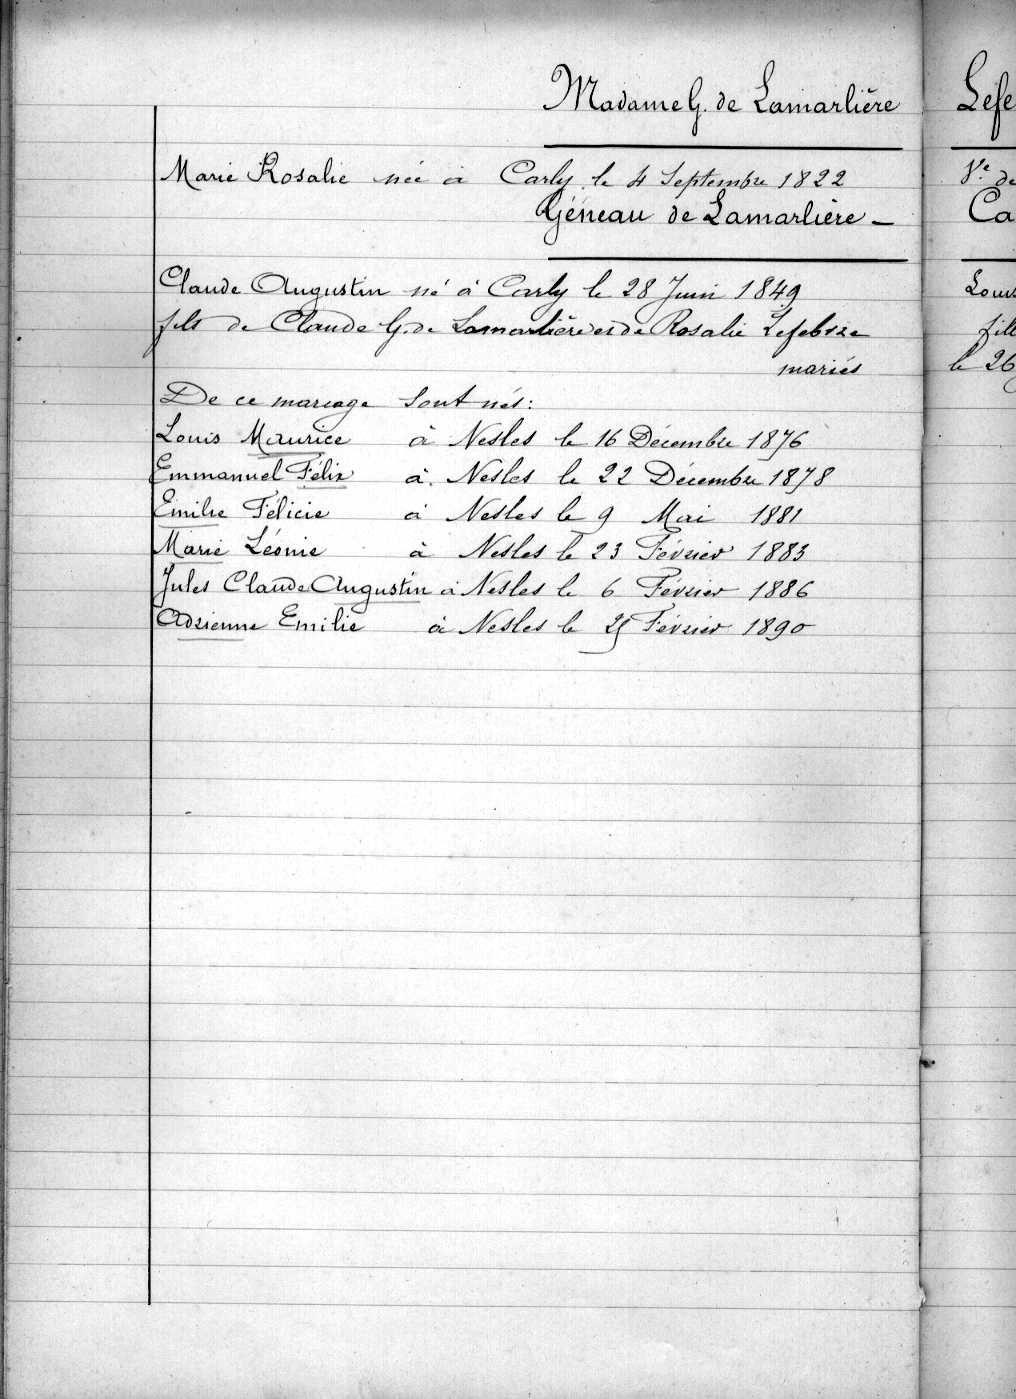 Madame G. de Lamarlière
Marie Rosalie née à Carly le 4 Septembre 1822
Géneau de Lamarlière
Claude Augustin né à Carly le 28 Juin 1849
fils de Claude G. de Lamarlière et de Rosalie Lefebvre
mariés
De ce mariage sont nés:
Louis Maurice à Nesles le 16 Décembre 1876
Emmanuel Félix à Nesles le 22 Décembre 1878
Emilie Félicie à Nesles le 9 Mai 1881
Marie Léonie à Nesles le 23 Février 1883
Jules Claude Augustin à Nesles le 6 Février 1886
Adrienne Emilie à Nesles le Février 1890
Lefe
Vve de
Ca
Louis
fill
le 26